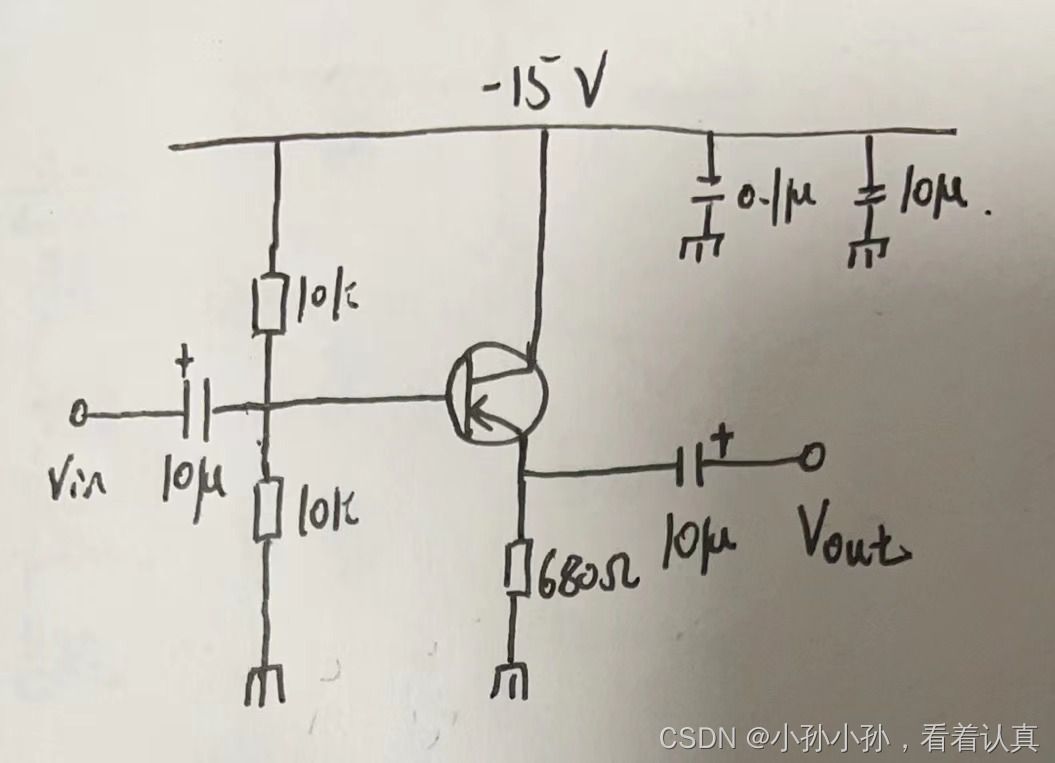 -15V
0.1μ
10μ.
10k
+
Vin
10μ
10k
+
10μ
Vout
680Ω
CSDN @小孙小孙，看着认真